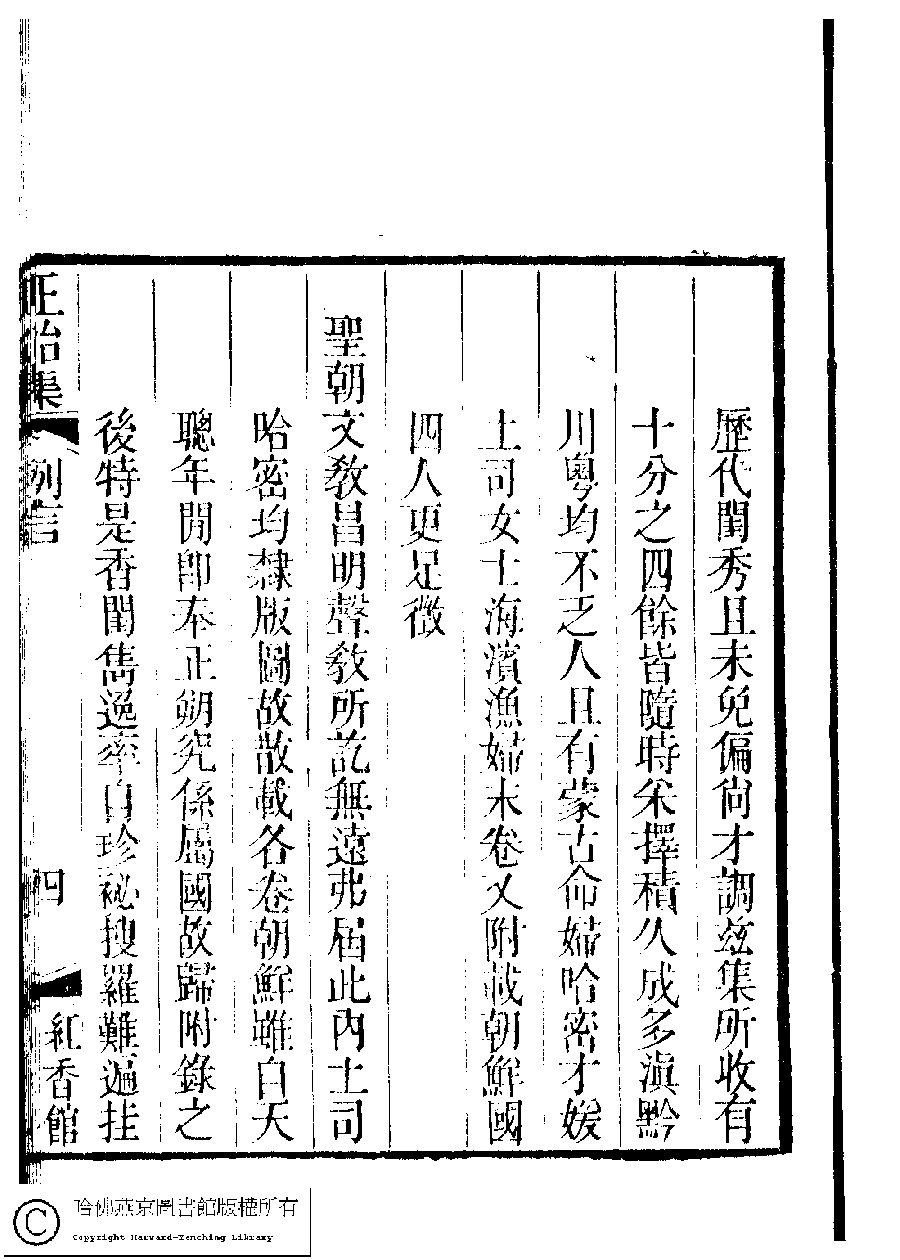 歷代閨秀且未免偏尙才調兹集所收有
十分之四餘皆隨時采擇積久成多滇黔
川粵均不乏人且有蒙古命婦哈密才媛
土司女士海濱漁婦末卷又附載朝鮮國
四人更足徵
聖朝文敎昌明聲敎所訖無遠弗届此內土司
哈密均隸版圖故散載各卷朝鮮雖自天
聰年間卽奉正朔究係屬國故歸附錄之
後特是香閨雋逸率自珍祕搜羅難遍挂
正始集
例言
四
紅香館
哈佛燕京圖書館版權所有
Copyright Harvard-Yenching Library